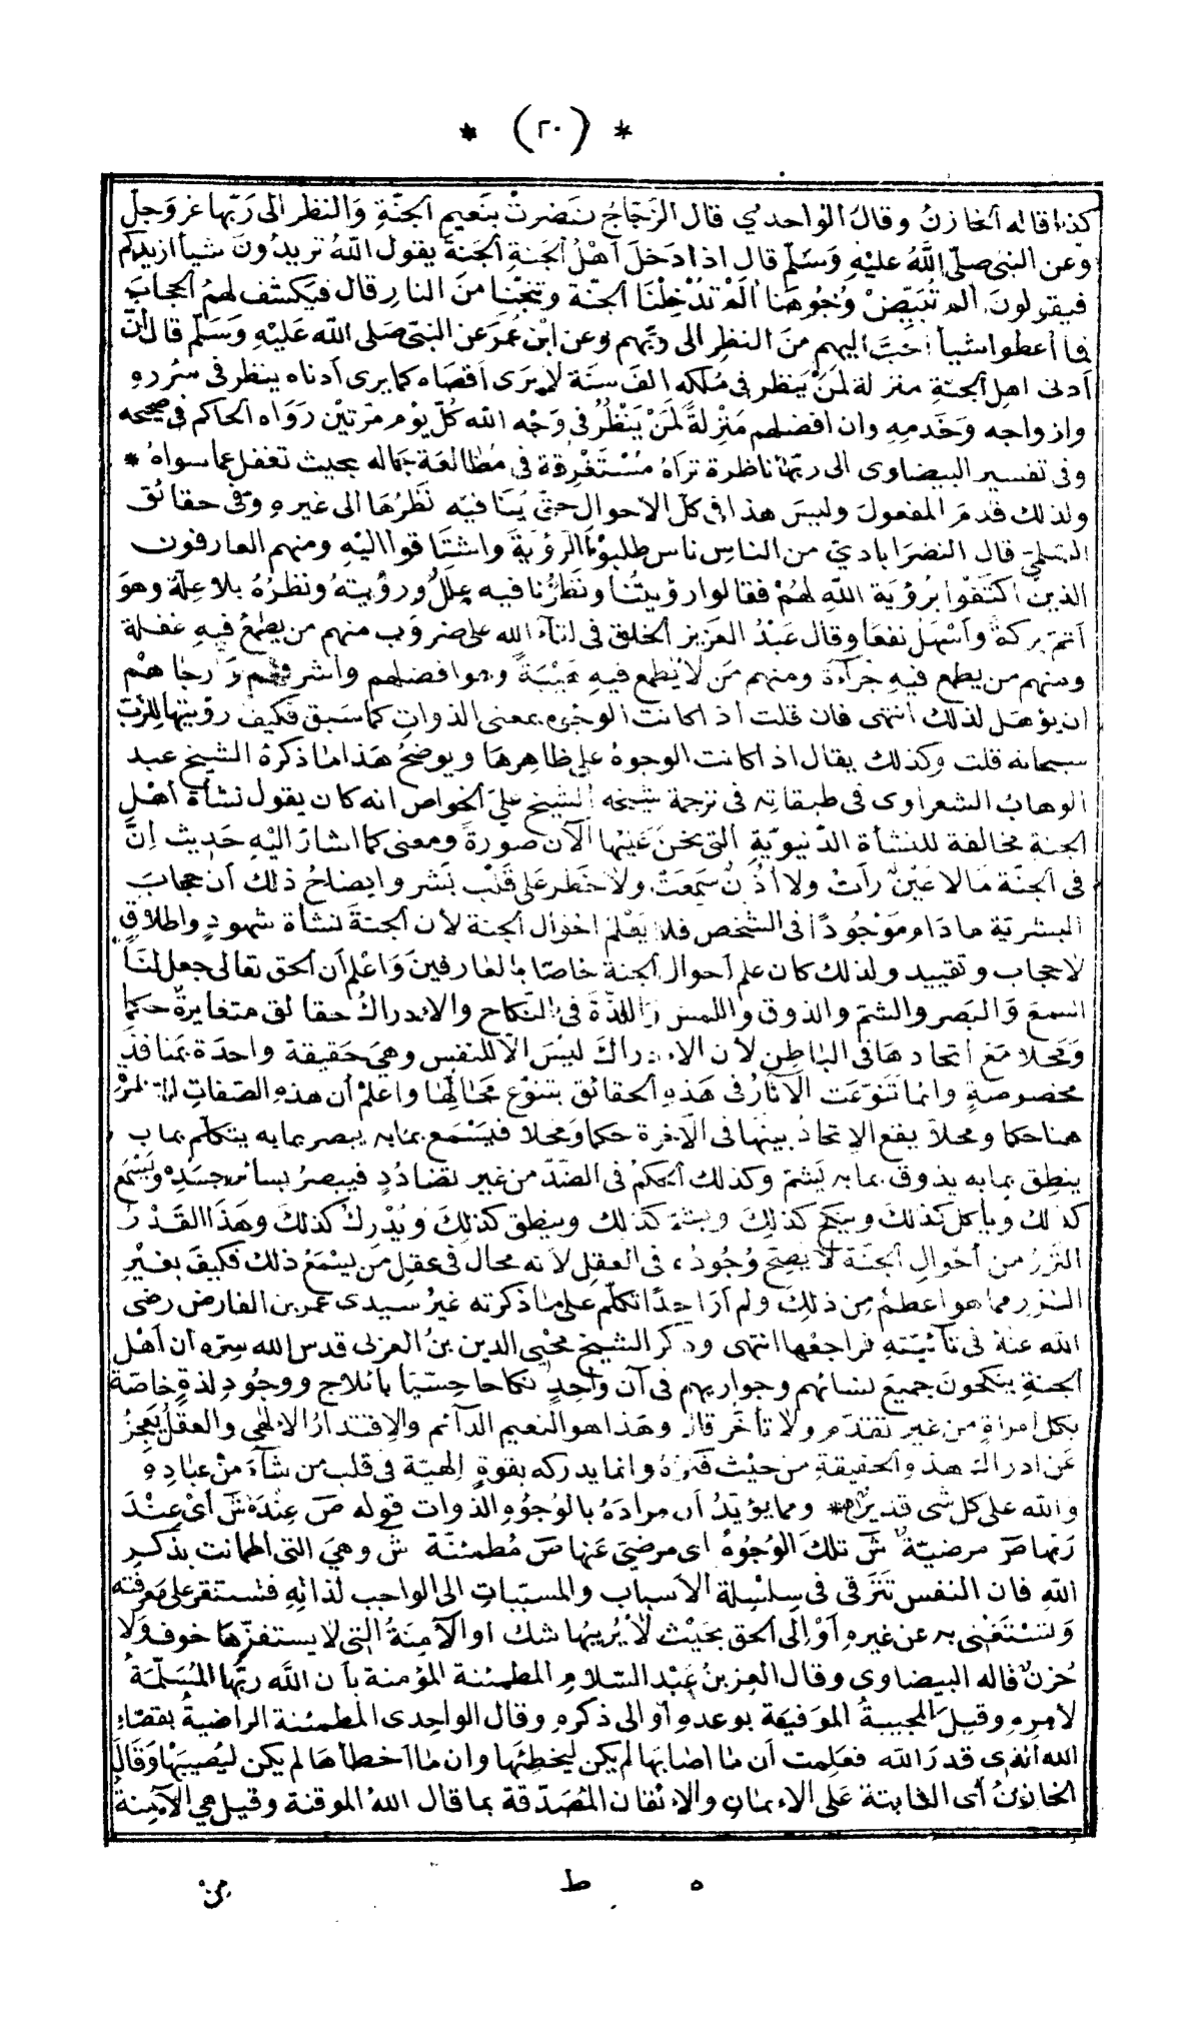 * (٢٠) *
كذا قاله الخازنُ وقالَ الواحدي قال الزجّاجُ نضرتْ بنَعيمِ الجنّةِ وَالنظر الى رَبّها عز وَجلّ
وعن النبي صلّى اللّهُ عليْهِ وَسَلّم قال اذا دَخلَ أهْلُ الجَنةِ الجَنةَ يقول اللّهُ تريدُونَ شيأ ازيدكم
فيقولونَ الم تُبَيِّضْ وُجُوهَنا الَمْ تدْخِلْنَا الجنّة وتنجِّنا منَ النارِ قال فيَكشف لهمُ الحجابَ
فما أعطوا شيأ أحَبَّ اليهم منَ النظرِ الى ربّهم وعن ابْن عُمرَ عن النبىّ صَلى اللّه عَليْهِ وَسَلّم قال انّ
أدنى اهل الجنةِ منزلة لمَنْ يَنظر في مُلكه الفَ سنَة لا يرَى اَقصَاه كما يرى أدناه ينظر في سُرُره
وازواجه وَخَدمِه وان افضلهم مَنْزِلةً لمَنْ يَنْظُرُ في وَجْه اللّه كُلّ يوْم مرّتيْن رَوَاه الحاكم في صحيحه
وفى تفسير البيضاوى الى ربّها ناظرة ترَاهُ مُسْتَغْرِقة في مُطالعَة جماله بحيث تغفل عما سواهُ *
ولذلك قدمَ المفعولَ وليسَ هذا في كلّ الاحوال حتّى يُنافيَه نَظرُهَا الى غيرهِ وفى حقائق
السّلمي قال النصرَاباديّ من الناسِ ناس طلبوُا الرّؤيَةَ واشتَاقوا اليْهِ ومنهم العارفون
الذينَ اكتفَوْا برُؤيَة اللّهِ لهُمْ فقالوا رؤيتُنا ونَظَرُنا فيه عِللٌ ورؤيتهُ ونظرُهُ بلا علّة وهوَ
أتمّ بركةً وأشْمَلُ نفعًا وقال عَبْدُ العَزيز الخلق في لقاء اللّه على ضروب منهم من يطمعُ فيهِ غفلة
ومنهم من يطمع فيهِ جُرأةً ومنهم مَن لا يُطمع فيهِ هَيْبَةً وهوافضلهم وأشرفهم درجا هُمْ
ان يؤهَل لذلك انتهى فان قلت اذا كانت الوجُوه بمعنى الذواتِ كما سَبق فكيف رؤيتها للرّبّ
سبحانه قلت وكذلك يقال اذا كانت الوجوهُ على ظاهِرهَا ويوضحُ هَذا ما ذكرهُ الشيخ عبد
الوهابُ الشعراوى في طبقاتِه في ترجمة شيخه الشيخ علىّ الخواصِ انه كان يقول نشأةُ أهْلِ
الجنة مخالفة للنشأة الدّنيويّةِ التى نحنَ عَليْها الآن صورةً ومعنى كما اشارَ اليْهِ حَديث اِنَّ
فى الجنّة مَالا عَيْنٌ رأتْ ولا أذنٌ سَمعَتْ ولا خَطر عَلى قَلْب بَشر وايضاحُ ذلك أن حجابَ
البشريّة مادَام مَوْجُودًا في الشخص فلا يَعْلم احْوال الجنة لأن الجنةَ نشأة شهودٍ واطلاقٍ
لا حجاب وتقييد ولذلك كان علم أحوال الجنة خاصًا بالعارفينَ وَاعْلم أن الحق تعالى جعل لنَا
السّمعَ وَالبَصر والشمّ والذوق واللمس وَاللذّةَ في النكاح والادراكَ حقائق متغايرةً حكما
وَمحلا مَعَ اتحادهَا في البَاطِنِ لأن الادراكَ ليْسَ الّا للنفسِ وهيَ حَقيقة واحدَة بمَنافذَ
مخصوصةٍ وانما تَنوّعَت الآثارُ في هَذهِ الحقائق بتنوّعِ مَحَالّها واعلمْ أن هذهِ الصّفاتِ
هناحكما ومحلاً يقع الاتحادُ بينَها في الآخرة حكما وَمحلا فيَسْمَع بمابه يبصر بمابه يتكلّم بما به
ينطِق بمابه يذوق بمابه يَشمّ وكذلك الحكمُ في الضّدّ من غيرِ تضَادُدٍ فيبصرُ بسائر جسَدِهِ ويَسْمَع
كذلك ويأكل كذلكَ وينكح كذلِكَ ويشمّ كذلك وينطق كذلِكَ ويُدْركُ كذلكَ وهَذَا القَدْرُ
النّزرُ من أحْوالِ الجَنّة لا يصحّ وُجُودُه فى العَقلِ لأنه محال في عقلِ مَن يَسْمَعُ ذلك فكيفَ بغيْرِ
النّزر مما هو اعظمُ من ذلِكَ ولم أرَ احدًا تكلّم على ما ذكرته غيرُ سيدى عُمر بن الفارض رضى
اللّه عنهُ في تائيّته فراجعْها انتهى وذكر الشيخ محيْى الدين بنُ العربي قدس اللّه سِرّه أن أهْل
الجنةِ ينكحونَ جميعَ نسَائهم وجواريهم في آن واحِدٍ نكاحا حِسّيًا بائلاج ووجُودِ لذةٍ خاصّة
بكل امراةٍ من غيرِ تقدّم ولا تأخّر قال وهَذا هو النعيم الدآئم والاقتدارُ الالهي والعقلُ يَعجزُ
عَن ادراك هذه الحقيقةِ من حيْث فكرُهُ وانما يدركه بقوةٍ الهيّة فى قلب من شَآءَ منْ عبَادِهِ
واللّه على كل شى قدير * ومما يؤيّدُ أن مرادَهُ بالوُجُوهِ الذوات قوله صَ عِنْدَهُ شَ أىْ عِنْدَ
رَبّها صَ مرضيّةٌ شَ تلكَ الوُجُوهُ اى مرضيّ عَنها صَ مُطمئنّة شَ وهيَ التى اطمانت بذكرِ
اللّهِ فان النفس تَتَرَقى فى سِلسِلة الأسباب والمسبّباتِ الى الواجب لذاتِهِ فتستقر على مَعرفَته
وتستَغْنى به عن غيرهِ اَوْ الى الحق بحَيْث لا يُريبُها شك او الآمِنَةُ التى لا يستفزّها خوف ولا
حُزنٌ قاله البيضاوي وقال العز بنُ عَبْد السّلامِ المطمئنة المؤمنة بأن اللَّه ربُّها المُسَلّمةُ
لأمرِهِ وقيلَ المجيبةُ الموَقنِة بوعدهِ أو الى ذكره وقال الواحِدى المطمئنة الراضيةُ بقضَاءِ
اللّه الذى قدرَ اللّه فعَلِمت أن ما اصَابَها لم يكن ليخطِئها وان ما أخطأهَا لم يكن ليُصيبَها وَقالَ
الخازنُ أى الثابتة عَلى الايمانِ والايْقان المُصَدّقة بما قال اللّهُ الموقنة وقيل هي الآمنة
ه ط من